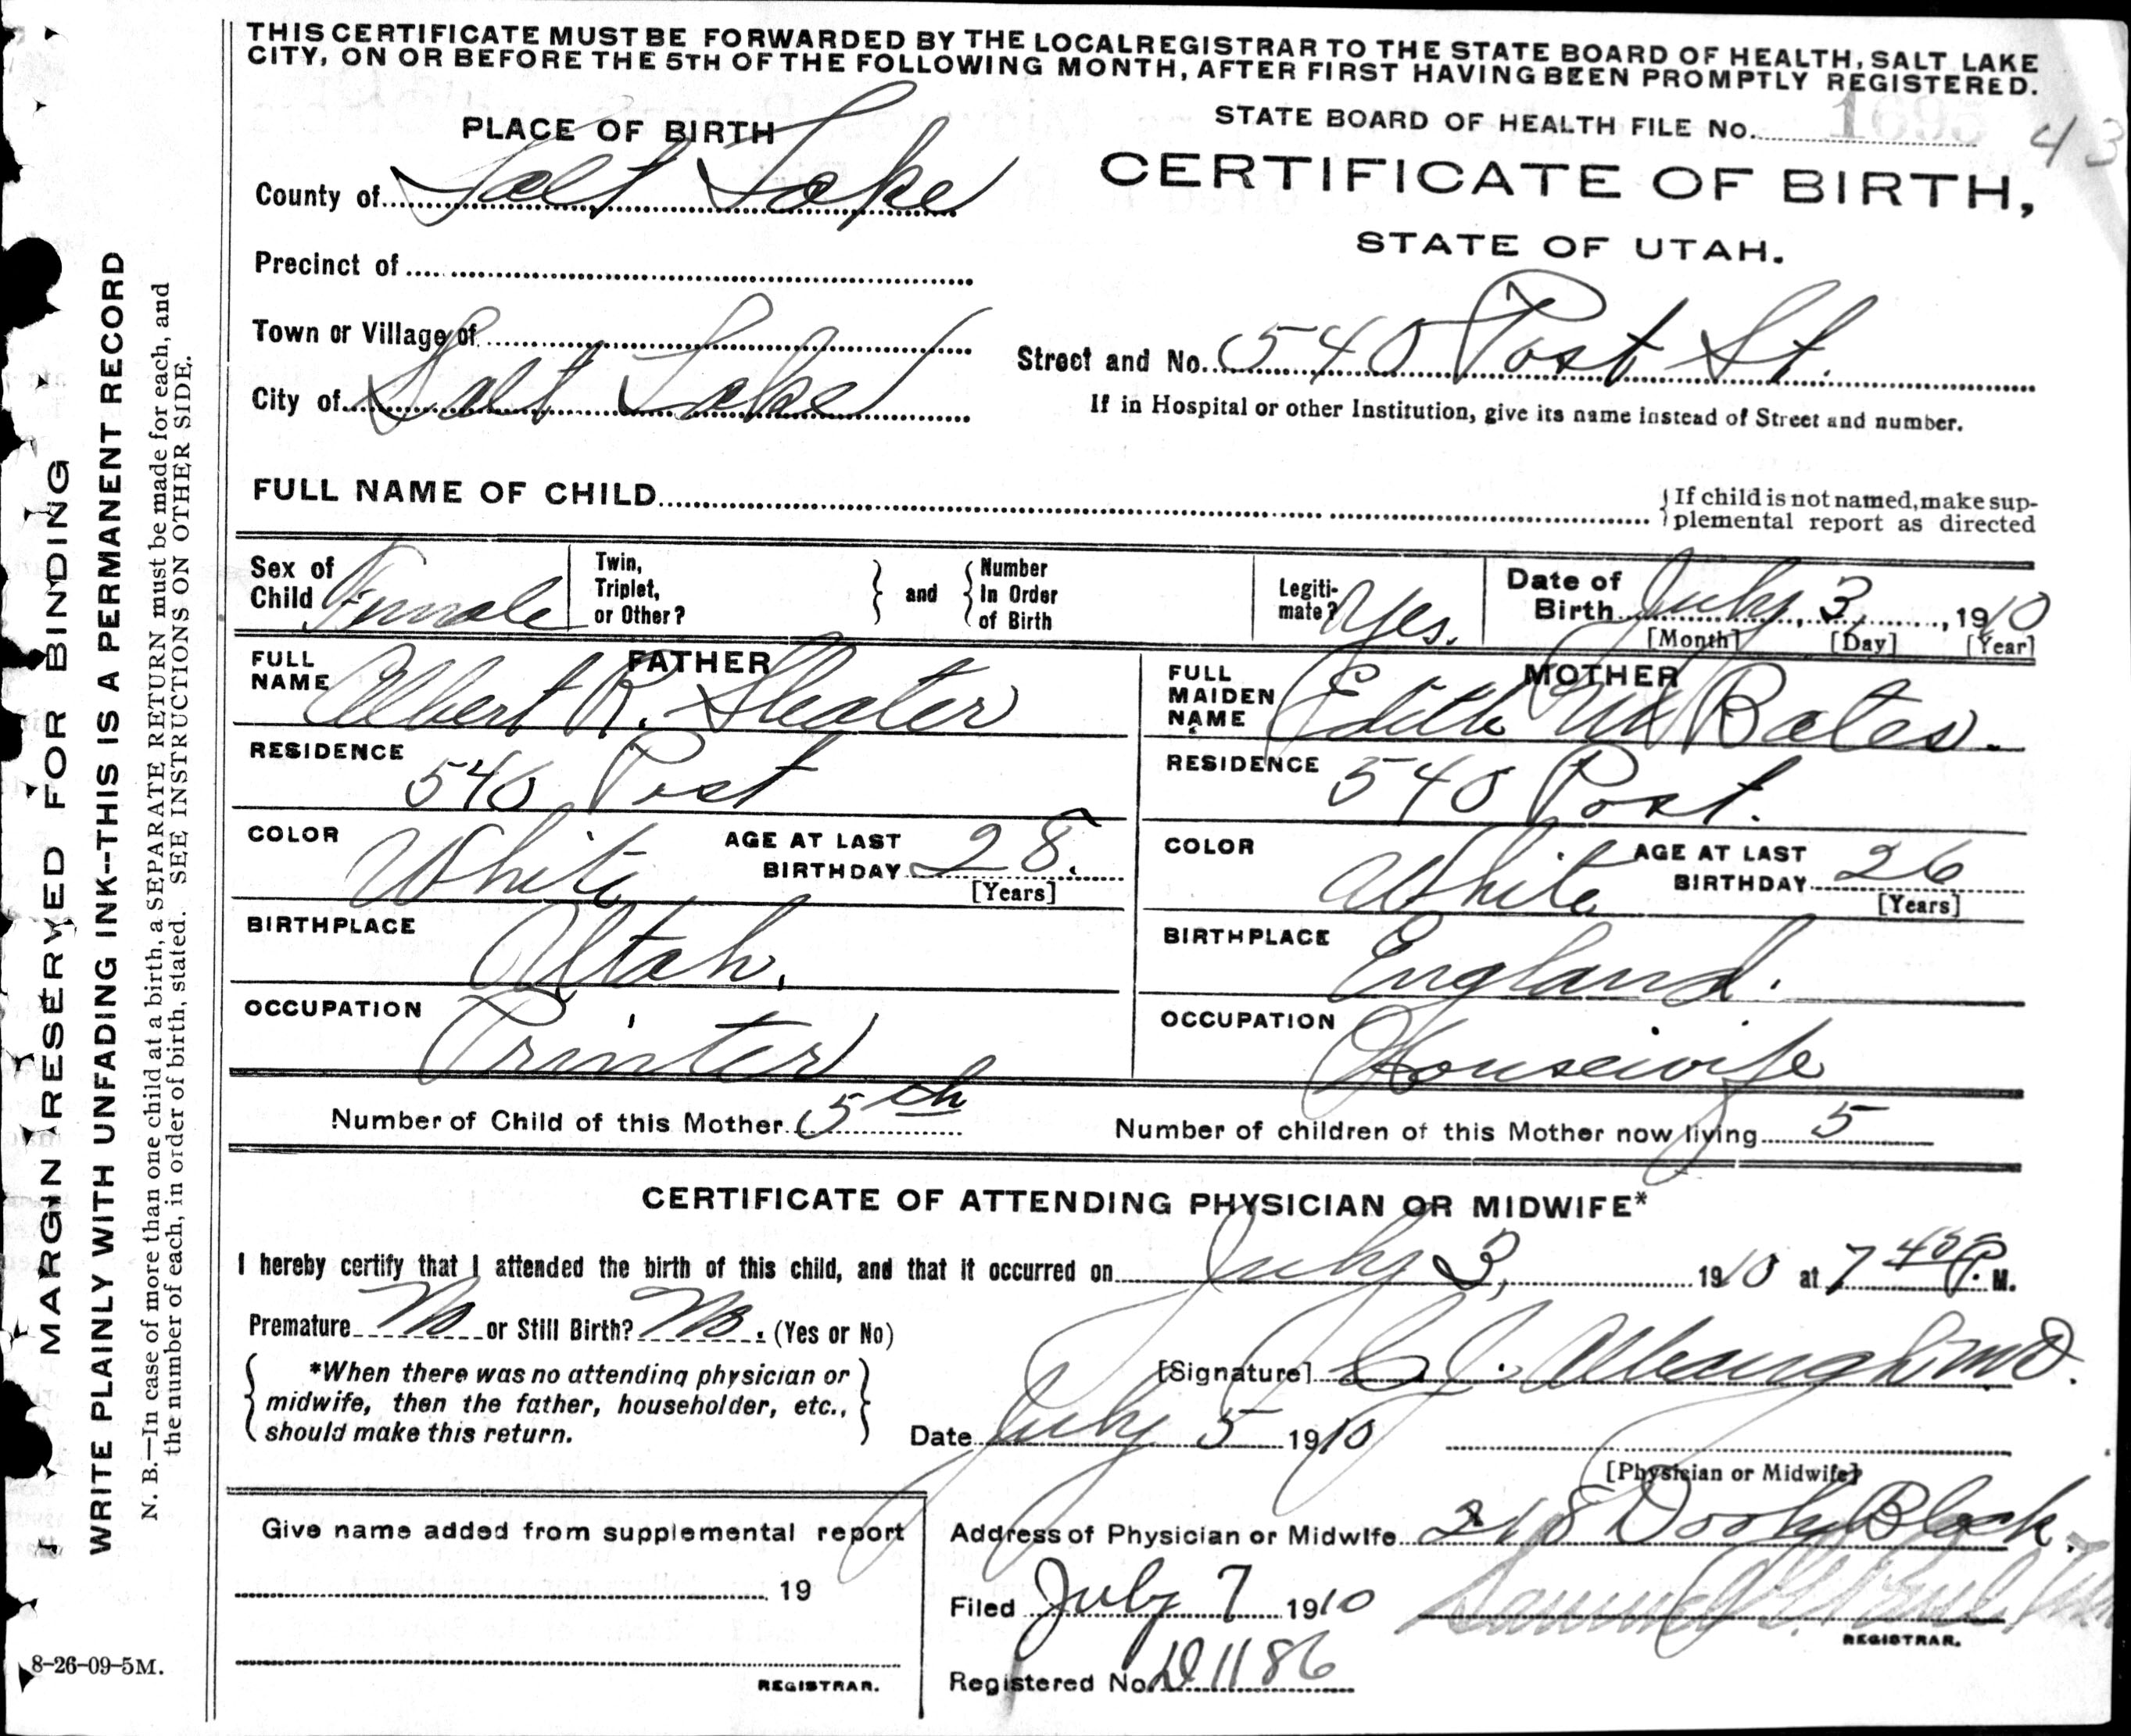 THIS CERTIFICATE MUST BE FORWARDED BY THE LOCAL REGISTRAR TO THE STATE BOARD OF HEALTH, SALT LAKE
CITY, ON OR BEFORE THE 5TH OF THE FOLLOWING MONTH, AFTER FIRST HAVING BEEN PROMPTLY REGISTERED.
STATE BOARD OF HEALTH FILE No. 1695 43
PLACE OF BIRTH
CERTIFICATE OF BIRTH,
STATE OF UTAH.
County of Salt Lake
Precinct of
Town or Village of
City of Salt Lake
Street and No. 540 Post St.
If in Hospital or other Institution, give its name instead of Street and number.
FULL NAME OF CHILD
If child is not named, make sup-
plemental report as directed
Sex of Child Female
Twin, Triplet, or Other?
and
Number In Order of Birth
Legiti-mate? Yes.
Date of Birth July 3, 1910
[Month] [Day] [Year]
FATHER
FULL NAME Albert R. Sleater
RESIDENCE 540 Post
COLOR White AGE AT LAST BIRTHDAY 28.
[Years]
BIRTHPLACE Utah.
OCCUPATION Printer
MOTHER
FULL MAIDEN NAME Edith M Bates.
RESIDENCE 540 Post.
COLOR White AGE AT LAST BIRTHDAY 26
[Years]
BIRTHPLACE England.
OCCUPATION Housewife
Number of Child of this Mother 5th
Number of children of this Mother now living 5
CERTIFICATE OF ATTENDING PHYSICIAN OR MIDWIFE*
I hereby certify that I attended the birth of this child, and that it occurred on July 3, 1910 at 7 45 P. M.
Premature No or Still Birth? No. (Yes or No)
*When there was no attending physician or
midwife, then the father, householder, etc.,
should make this return.
[Signature] C. J. Albaugh M.D.
Date July 5 1910
[Physician or Midwife]
Address of Physician or Midwife 218 Dooly Block.
Give name added from supplemental report
19
REGISTRAR.
Filed July 7 1910
Samuel G. Paul
REGISTRAR.
Registered No. D 1186
MARGIN RESERVED FOR BINDING
WRITE PLAINLY WITH UNFADING INK--THIS IS A PERMANENT RECORD
N. B.—In case of more than one child at a birth, a SEPARATE RETURN must be made for each, and
the number of each, in order of birth, stated. SEE INSTRUCTIONS ON OTHER SIDE.
8-26-09-5M.